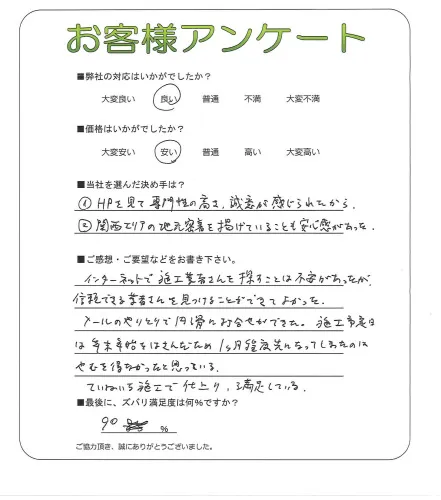 お客様アンケート
■弊社の対応はいかがでしたか?
大変良い 良い 普通 不満 大変不満
■価格はいかがでしたか?
大変安い 安い 普通 高い 大変高い
■当社を選んだ決め手は?
① HPを見て専門性の高さ、誠意が感じられたから。
② 関西エリアの地元密着を掲げていることも安心感があった。
■ご感想・ご要望などをお書き下さい。
インターネットで施工業者さんを探すことは不安があったが、
信頼できる業者さんを見つけることができてよかった。
メールのやりとりで円滑に打合せができた。施工予定日
は年末年始をはさんだため1ヶ月程度先になってしまったのは
やむを得なかったと思っている。
ていねいな施工で仕上り、満足している。
■最後に、ズバリ満足度は何%ですか?
90 %
ご協力頂き、誠にありがとうございました。